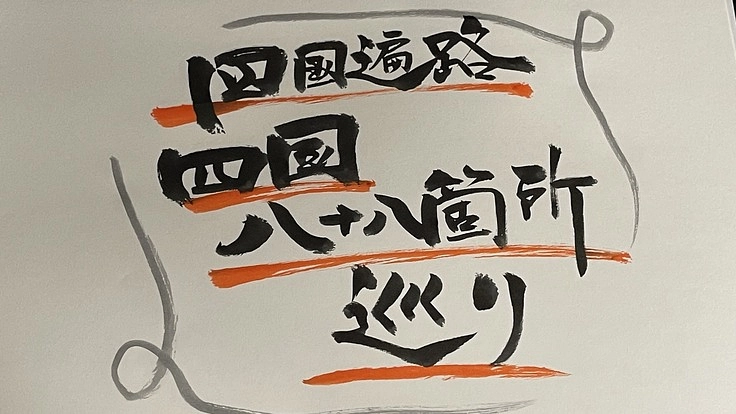 四國遍路
四国
八十八箇所
巡り